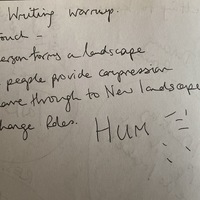 Writing warmup.
ouch -
erson forms a landscape
people provide compression
ame through to New landscape
hange Roles.
HUM